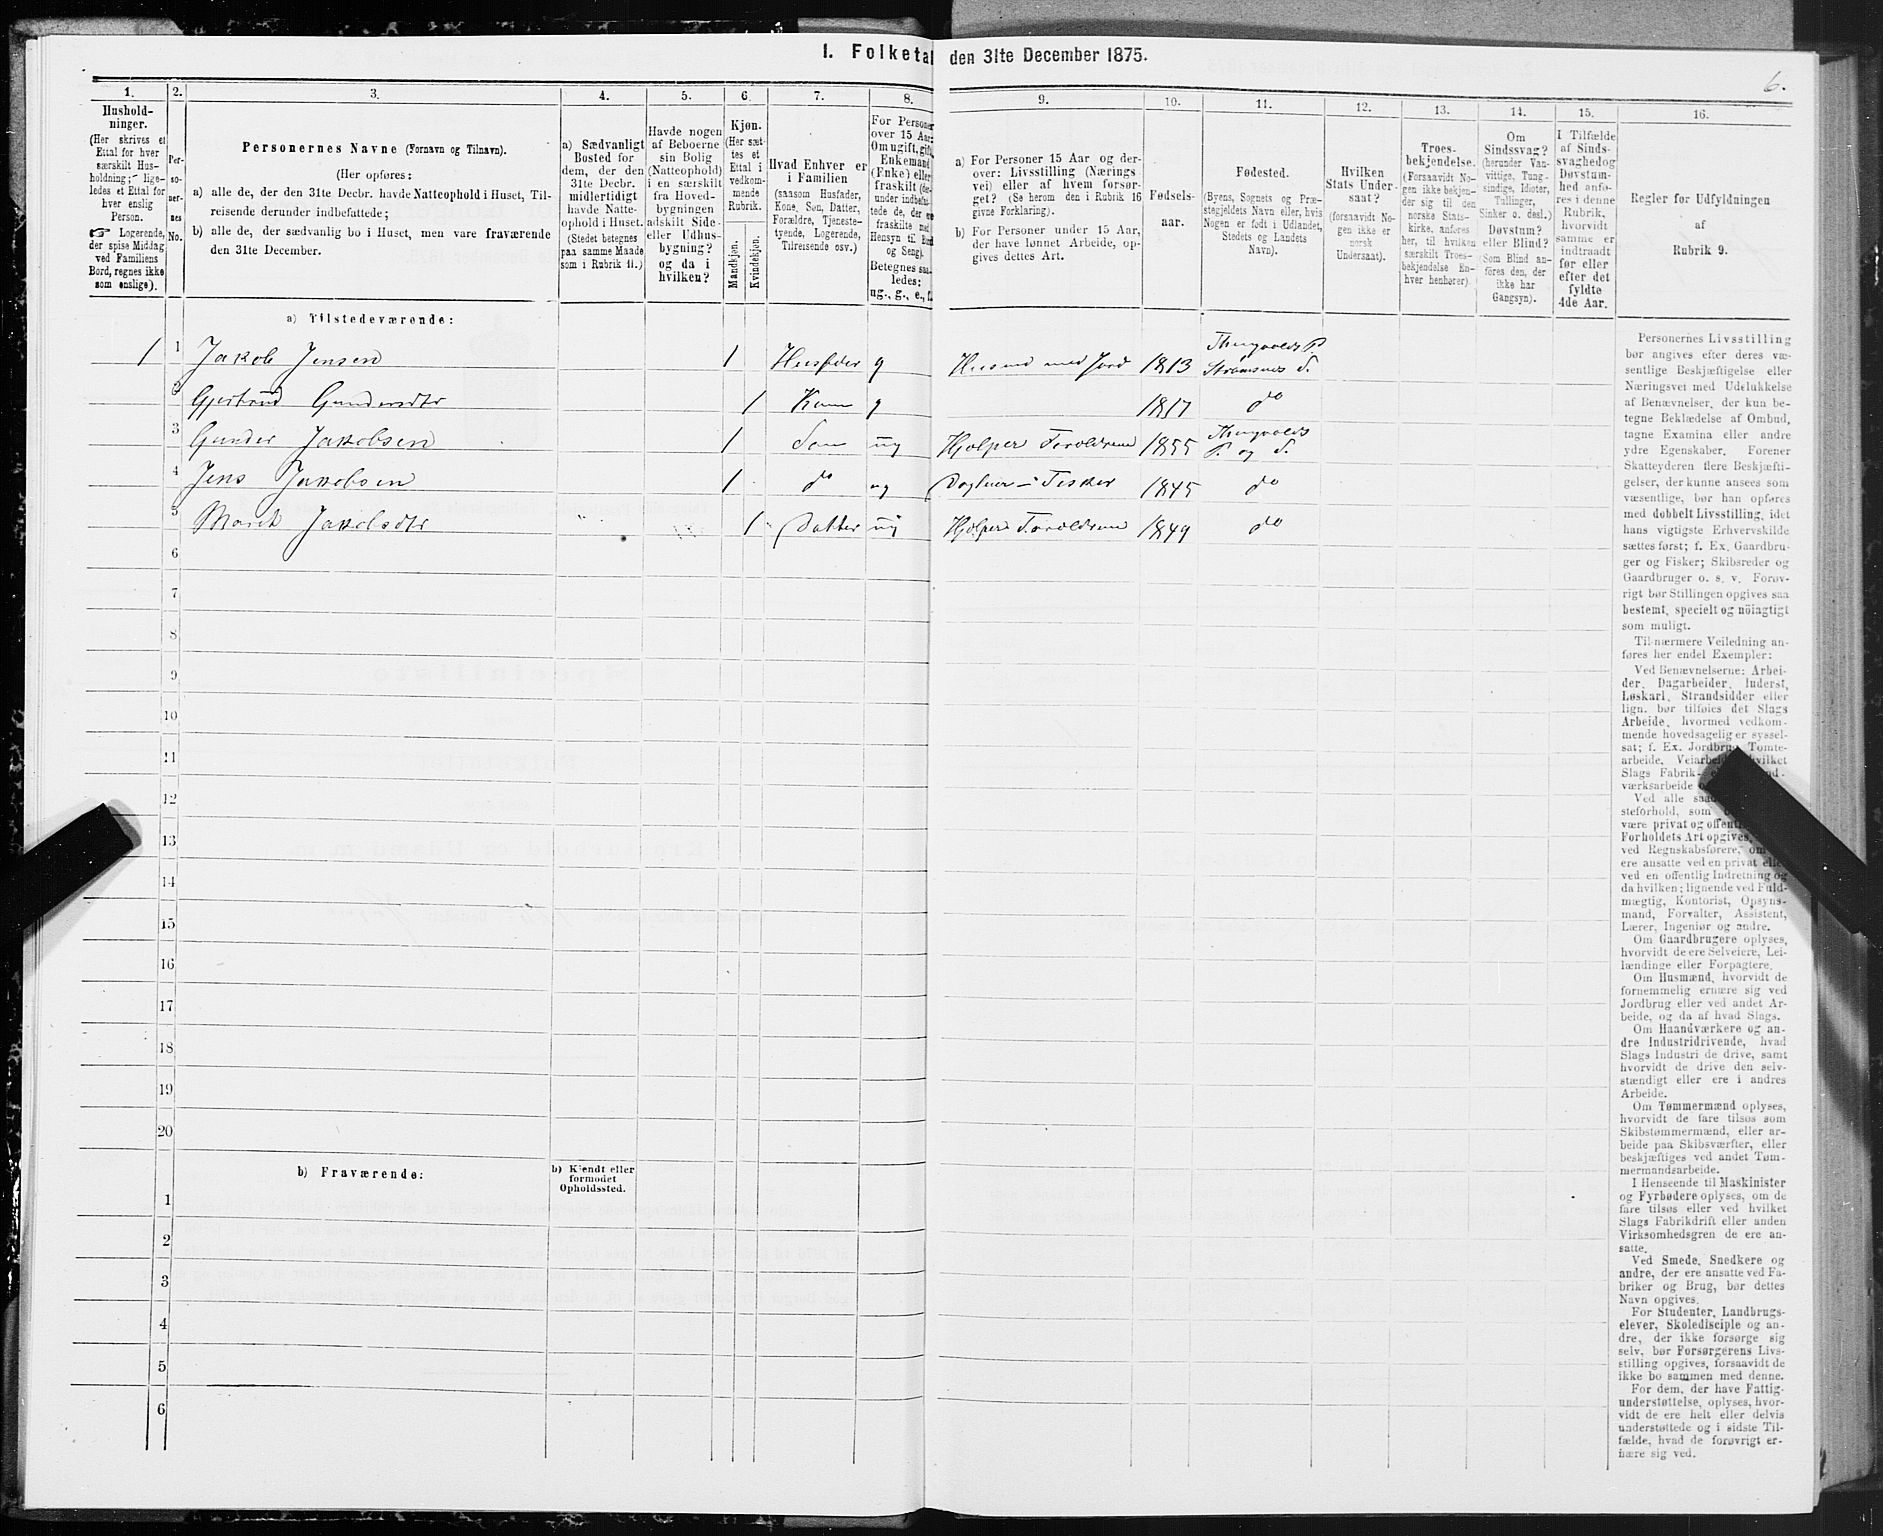 1. Folketal den 31te December 1875.
6.
1.
Hushold-
ninger.
(Her skrives et
Ettal for hver
særskilt Hus-
holdning; lige-
ledes et Ettal for
hver enslig
Person.
☞ Logerende,
der spise Middag
ved Familiens
Bord, regnes ikke
som enslige).
2.
Per-
so-
ner-
nes
No.
3.
Personernes Navne (Fornavn og Tilnavn).
(Her opføres:
a) alle de, der den 31te Decbr. havde Natteophold i Huset, Til-
reisende derunder indbefattede;
b) alle de, der sædvanlig bo i Huset, men vare fraværende
den 31te December.
4.
a) Sædvanligt
Bosted for
dem, der den
31te Decbr.
midlertidigt
havde Natte-
ophold i Huset.
(Stedet betegnes
paa samme Maade
som i Rubrik 11.)
5.
Havde nogen
af Beboerne
sin Bolig
(Natteophold)
i en særskilt
fra Hoved-
bygningen
adskilt Side-
eller Udhus-
bygning?
og da i
hvilken?
6.
Kjøn.
(Her sæt-
tes et
Ettal i
vedkom-
mende
Rubrik.
Mandkjøn.
Kvindekjøn.
7.
Hvad Enhver er
i Familien
(saasom Husfader,
Kone, Søn, Datter,
Forældre, Tjeneste-
tyende, Logerende,
Tilreisende osv.)
8.
For Personer
over 15 Aar:
Om ugift, gift,
Enkemand
(Enke) eller
fraskilt (der-
under indbefat-
tede de, der ere
fraskilte med
Hensyn til Bord
og Seng).
Betegnes saa-
ledes:
ug., g., e., f.
9.
a) For Personer 15 Aar og der-
over: Livsstilling (Nærings-
vei) eller af hvem forsør-
get? (Se herom den i Rubrik 16
givne Forklaring).
b) For Personer under 15 Aar,
der have lønnet Arbeide, op-
gives dettes Art.
10.
Fødsels-
aar.
11.
Fødested.
(Byens, Sognets og Præ-
stegjeldets Navn eller, hvis
Nogen er født i Udlandet,
Stedets og Landets
Navn).
12.
Hvilken
Stats Under-
saat?
(forsaavidt No-
gen ikke er
norsk
Undersaat).
13.
Troes-
bekjendelse.
(Forsaavidt No-
gen ikke bekjen-
der sig til den
norske Stats-
kirke, anføres
her, til hvilken
særskilt Troes-
bekjendelse En-
hver henhører).
14.
Om
Sindssvag?
(herunder Van-
vittige, Tung-
sindige, Idioter,
Tullinger,
Sinker o. desl.)
Døvstum?
eller Blind?
(Som Blind an-
føres den, der
ikke har
Gangsyn).
15.
I Tilfælde
af Sinds-
svaghed og
Døvstum-
hed anfø-
res i denne
Rubrik,
hvorvidt
samme er
indtraadt
før eller
efter det
fyldte
4de Aar.
16.
Regler for Udfyldningen
af
Rubrik 9.
a) Tilstedeværende:
1 1 Jakob Jensen 1 Husfader g Husmd med Jord 1813 Thingvolds P. Strømsnes S.
2 Gjertrud Gundersdtr 1 Kone g 1817 do
3 Gunder Jakobsen 1 Søn ug Hjælper Forældrene 1855 Thingvolds P. og S.
4 Jens Jakobsen 1 do ug Dagleier – Fisker 1845 do
5 Marit Jakobsdtr 1 Datter ug Hjelper Forældrene 1849 do
6
7
8
9
10
11
12
13
14
15
16
17
18
19
20
b) Fraværende:
b) Kjendt eller
formodet
Opholdssted.
1
2
3
4
5
6
Personernes Livsstilling
bør angives efter deres væ-
sentlige Beskjæftigelse eller
Næringsvei med Udelukkelse
af Benævnelser, der kun be-
tegne Beklædelse af Ombud,
tagne Examina eller andre
ydre Egenskaber. Forener
Skatteyderen flere Beskjæfti-
gelser, der kunne ansees som
væsentlige, bør han opføres
med dobbelt Livsstilling, idet
hans vigtigste Erhvervskilde
sættes først; f. Ex. Gaardbru-
ger og Fisker; Skibsreder og
Gaardbruger o. s. v. Forøv-
rigt bør Stillingen opgives saa
bestemt, specielt og nöiagtigt
som muligt.
Til nærmere Veiledning an-
føres her endel Exempler:
Ved Benævnelserne: Arbei-
der, Dagarbeider, Inderst,
Løskarl, Strandsidder eller
lign. bør tilføies det Slags
Arbeide, hvormed vedkom-
mende hovedsagelig er syssel-
sat; f. Ex. Jordbrug, Tomte-
arbeide, Veiarbeide, hvilket
Slags Fabrik-
værksarbeide
Ved alle
steforhold, som
være privat og offentl
Forholdets Art opgives,
ved Regnskabsførere, om
ere ansatte ved en privat eller
ved en offentlig Indretning og
da hvilken; lignende ved Fuld-
mægtig, Kontorist, Opsyns-
mand, Forvalter, Assistent,
Lærer, Ingeniør og andre.
Om Gaardbrugere oplyses,
hvorvidt de ere Selveiere, Lei-
lændinge eller Forpagtere.
Om Husmænd, hvorvidt de
fornemmelig ernære sig ved
Jordbrug eller ved andet Ar-
beide, og da af hvad Slags.
Om Haandværkere og an-
dre Industridrivende, hvad
Slags Industri de drive, samt
hvorvidt de drive den selv-
stændigt eller ere i andres
Arbeide.
Om Tømmermænd oplyses,
hvorvidt de fare tilsøs som
Skibstømmermænd, eller ar-
beide paa Skibsværfter, eller
beskjæftiges ved andet Tøm-
mermandsarbeide.
I Henseende til Maskinister
og Fyrbødere oplyses, om de
fare tilsøs eller ved hvilket
Slags Fabrikdrift eller anden
Virksomhedsgren de ere an-
satte.
Ved Smede, Snedkere og
andre, der ere ansatte ved Fa-
briker og Brug, bør dettes
Navn opgives.
For Studenter, Landbrugs-
elever, Skoledisciple og an-
dre, der ikke forsørge sig
selv, bør Forsørgerens Livs-
stilling opgives, forsaavidt de
ikke bo sammen med denne.
For dem, der have Fattig-
understøttelse, oplyses, hvor-
vidt de ere helt eller delvis
understøttede og i sidste Til-
fælde, hvad de forøvrigt er-
nære sig ved.